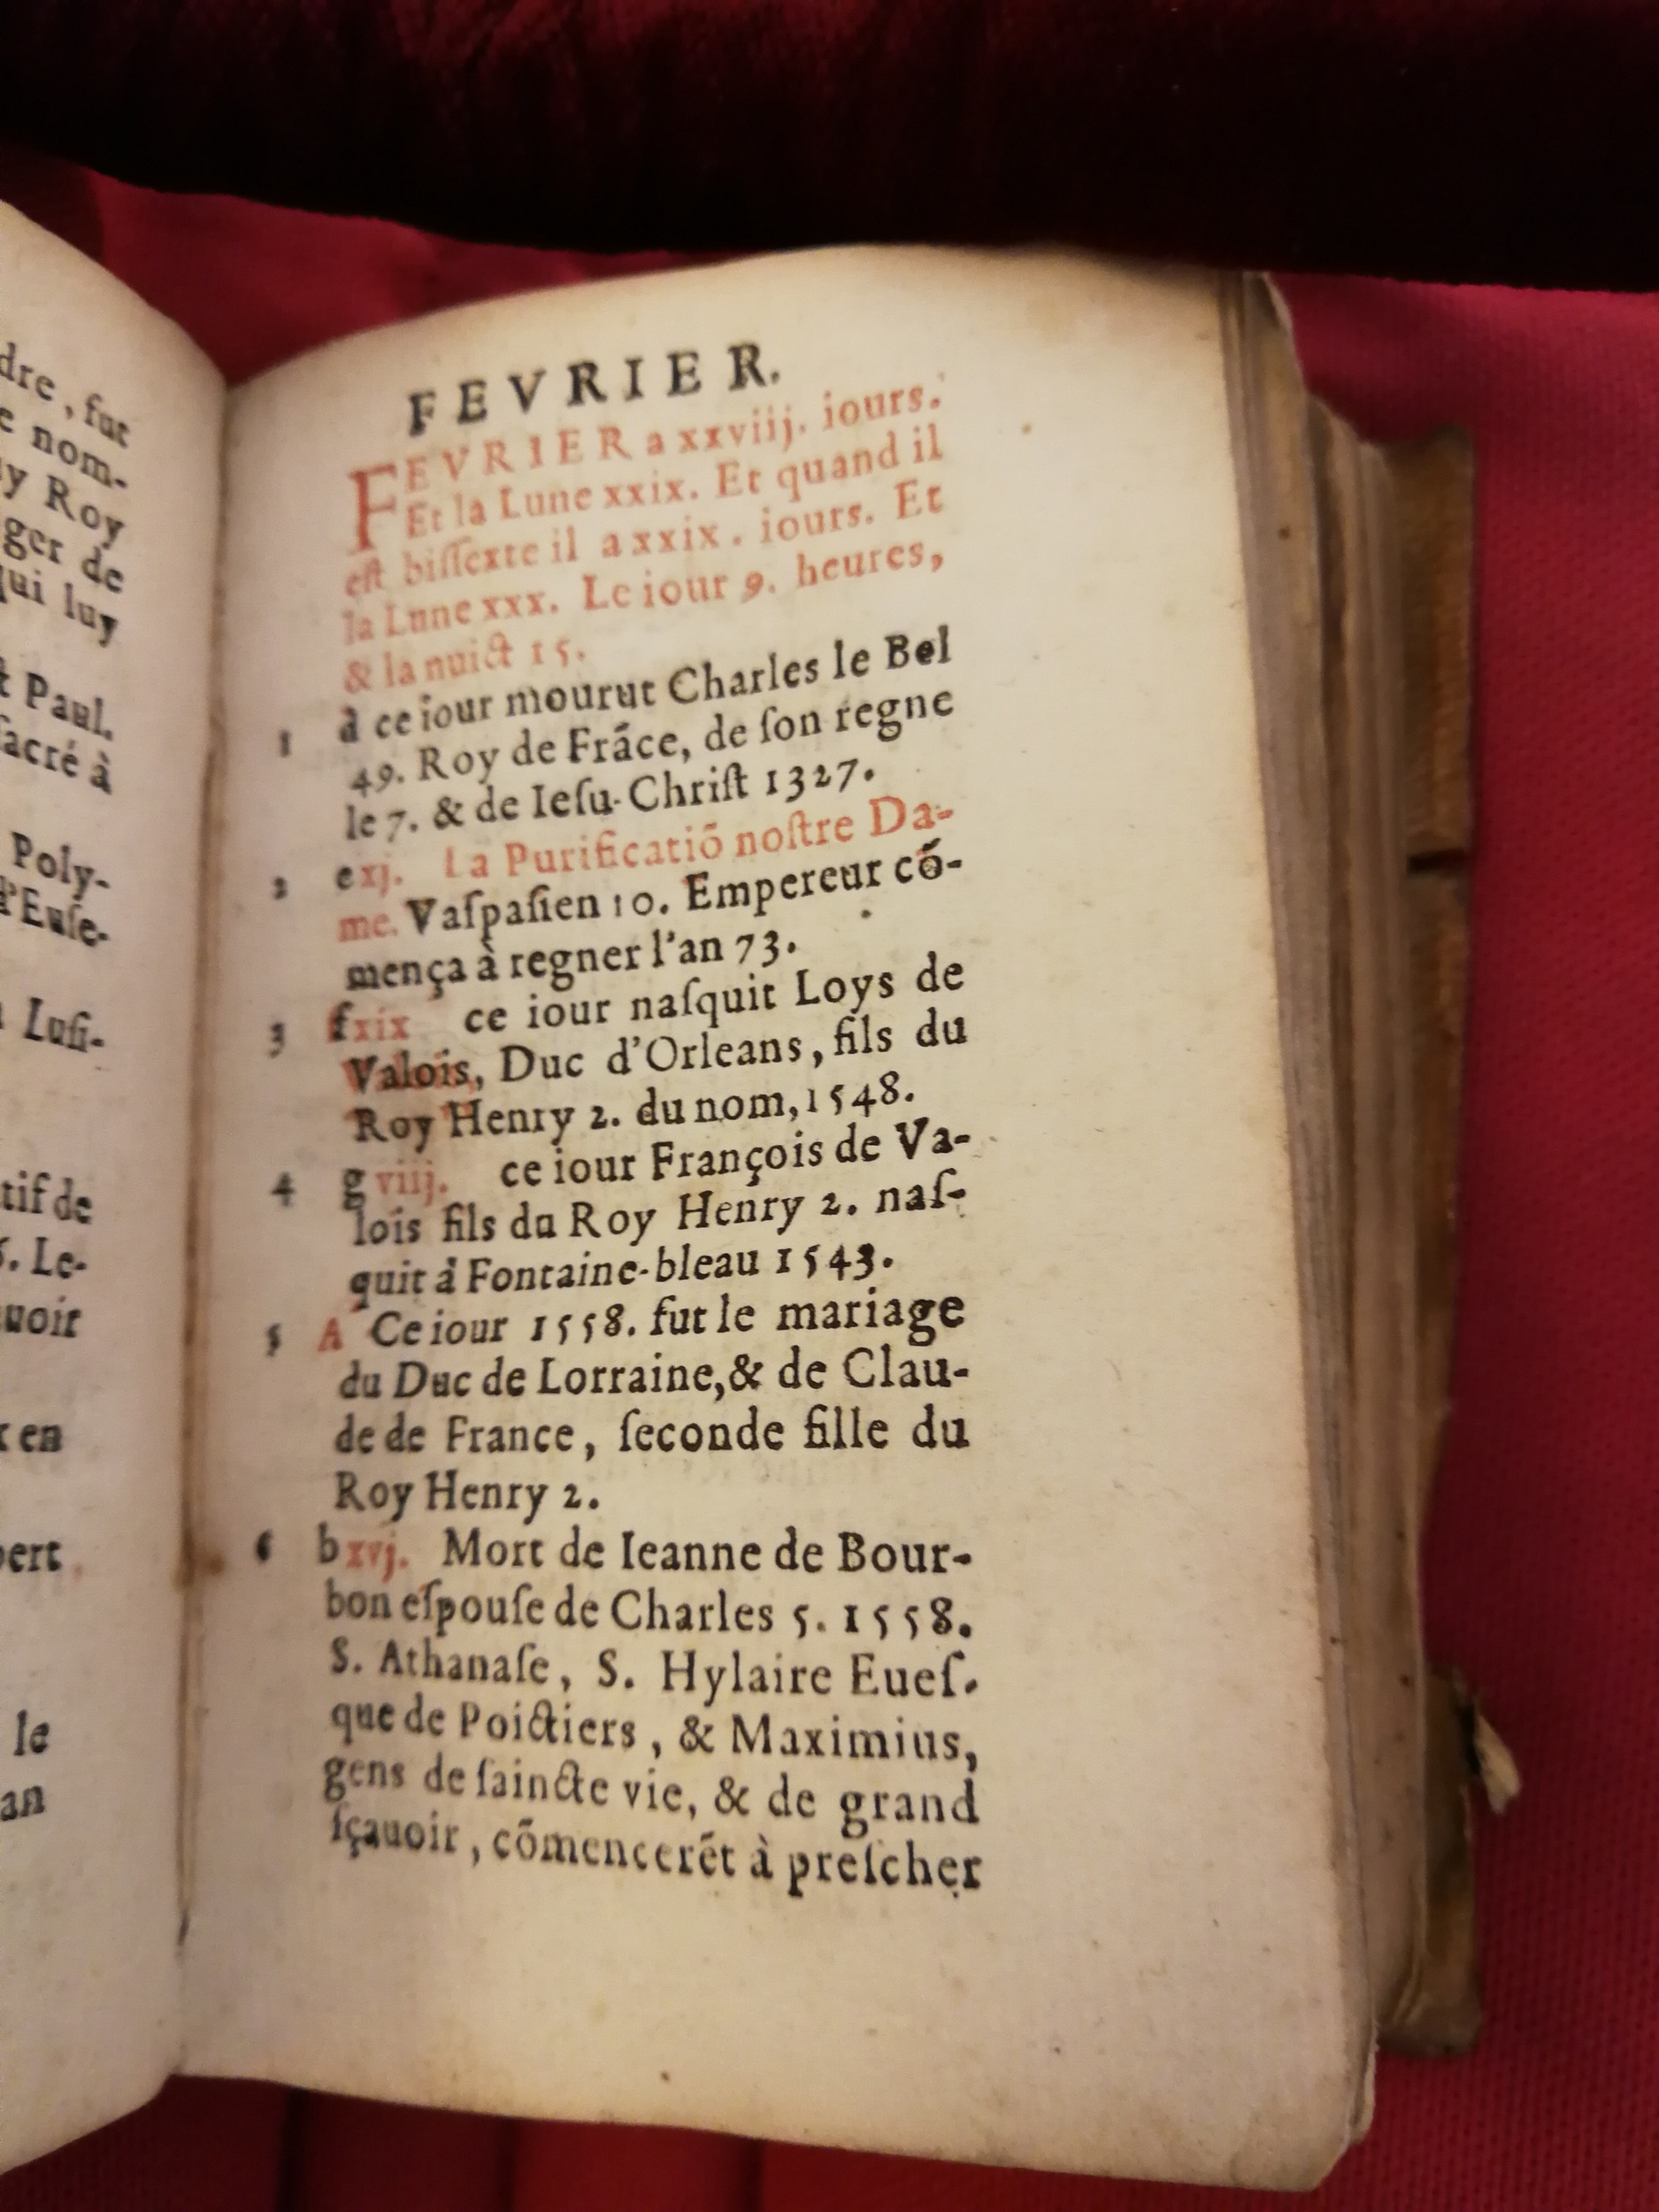 dre, fut
e nom-
y Roy
ger de
qui luy
t Paul.
sacré à
Poly-
d'Euse-
Lusi-
tif de
. Le-
uoir
en
bert
le
an
FEVRIER.
FEVRIER a xxviij. iours.
Et la Lune xxix. Et quand il
est bissexte il a xxix. iours. Et
la Lune xxx. Le iour 9. heures,
& la nuict 15.
1 d ce iour mourut Charles le Bel
49. Roy de Frãce, de ſon regne
le 7. & de Ieſu-Chriſt 1327.
2 e xj. La Purificatiõ noſtre Da-
me. Vaſpaſien 10. Empereur cõ-
mença à regner l'an 73.
3 f xix ce iour naſquit Loys de
Valois, Duc d'Orleans, fils du
Roy Henry 2. du nom, 1548.
4 g viij. ce iour François de Va-
lois fils du Roy Henry 2. naſ-
quit à Fontaine-bleau 1543.
5 A Ce iour 1558. fut le mariage
du Duc de Lorraine, & de Clau-
de de France, ſeconde fille du
Roy Henry 2.
6 b xvj. Mort de Ieanne de Bour-
bon eſpouſe de Charles 5. 1558.
S. Athanaſe, S. Hylaire Eueſ-
que de Poictiers, & Maximius,
gens de ſaincte vie, & de grand
ſçauoir, cõmencerẽt à preſcher